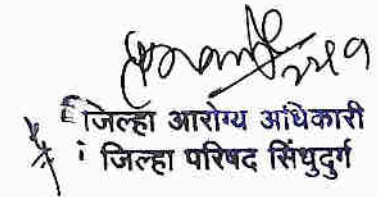 जिल्हा आरोग्य अधिकारी
जिल्हा परिषद सिंधुदुर्ग